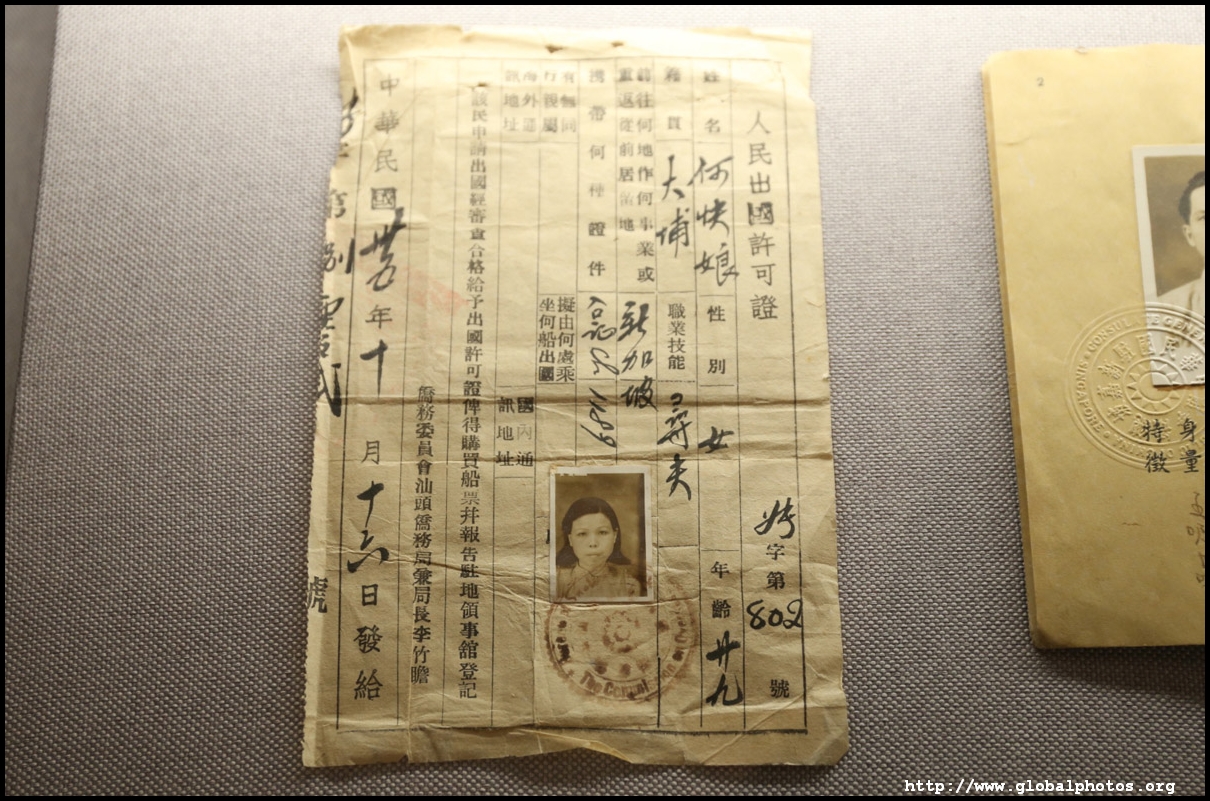 人民出國許可證
字第802號
姓名 何快娘 性別 女 年齡 廿九
籍貫 大埔 職業技能 尋夫
前往何地作何事業或
重返從前居留地 新加坡
攜帶何種證件
擬由何處乘
坐何船出國
有無同
行親屬
國內通
訊地址
海外通
訊地址
該民申請出國經審查合格給予出國許可證俾得購買船票幷報告駐地領事館登記
僑務委員會汕頭僑務局兼局長李竹瞻
中華民國卅五年十月十六日發給
第
號
The Consul
2
身量
特徵
SINGAPORE
CONSULATE GENERAL
http://www.globalphotos.org